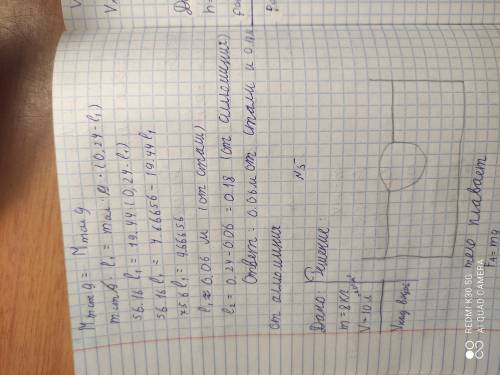 m ст g · l₁ = m ал · g · (0,24-l₁)
56.16 l₁ = 19.44 (0,24-l₁)
56.16 l₁ = 4.66656 - 19.44 l₁
75.6 l₁ = 4.66656
l₁ ≈ 0.06 м (от стали)
l₂ = 0.24-0.06 = 0.18 (от алюминия)
Ответ: 0.06м от стали и
от алюминия
N5
Дано Решение
m = 8кг
V = 10 л
тело плавает
REDMI K30 5G
AI QUAD CAMERA